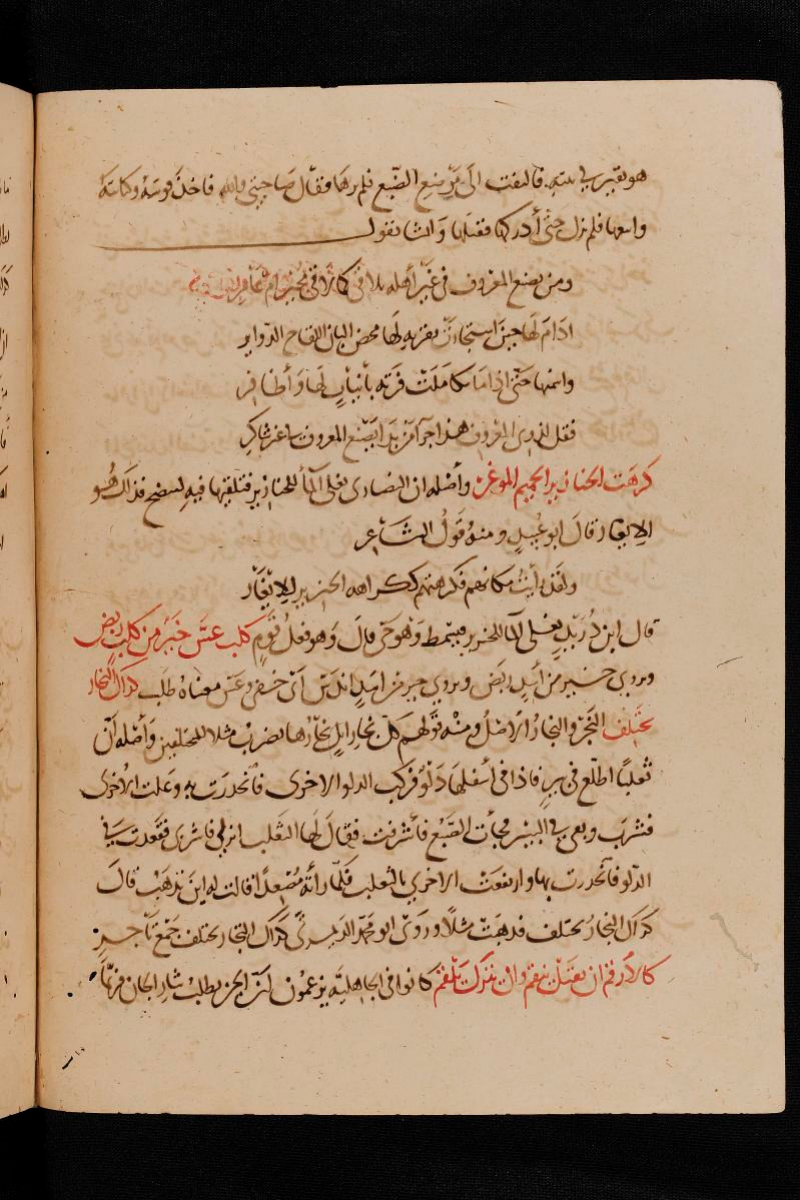 هو بقير في بيته فالتفت الى موضع الضبع فلم يرها فقال صاحبتي والله فاخذ قوسه وكنانته
واتبعها فلم يزل حتى أدركها فقتلها وانشا يقول
ومن يصنع المعروف في غير أهله يلاقي كما لاقى مجير ام عامر
ادام لها حين استجارت بقربه لها محض البان اللقاح الدواير
واسمنها حتى اذا ما تكاملت فرته بأنياب لها وأظافر
فقل لذوي المعروف هذا جزآ من بدا يصنع المعروف غير شاكر
كرهت الخنازير الحميم الموغر وأصله ان النصارى تغلى المآ للخنازير فتلقيها فيه لتنضج فذاك هو
الايغار قال ابو عبيد ومنه قول الشاعر
ولقد رأيت مكانهم فكرهتهم ككراهه الخنزير للايغار
قال ابن دريد يغلى المآ للخنزير فيسمط وهو حي قال وهو فعل قوم كلب عس خير من كلب ربض
ويروى خير من اسد ربض ويروى خير من اسد اندس أى خفى وعس معناه طلب كل النجار
يختلف النجر والنجار الاصل ومنه قولهم كل نجار ابل نجارها يضرب مثلا للمختلفين وأصله أن
ثعلبا اطلع في بير فاذا في أسفلها دلو فركب الدلو الاخرى فانحدرت به وعلت الاخرى
فشرب وبقى في البير فجأت الضبع فأشرفت فقال لها الثعلب انزلي فاشربى فقعدت في
الدلو فانحدرت بها وارتفعت الاخرى بالثعلب فلما رأته مصعدا قالت له اين تذهب قال
كذاك النجار يختلف فذهبت مثلا وروى ابو محمد الديمرتى كذاك التجار يختلف جمع تاجر
كالارقم ان يقتل ينقم وان يترك يلقم كانوا في الجاهلية يزعمون ان الجن يطلب بثار الجان فربما